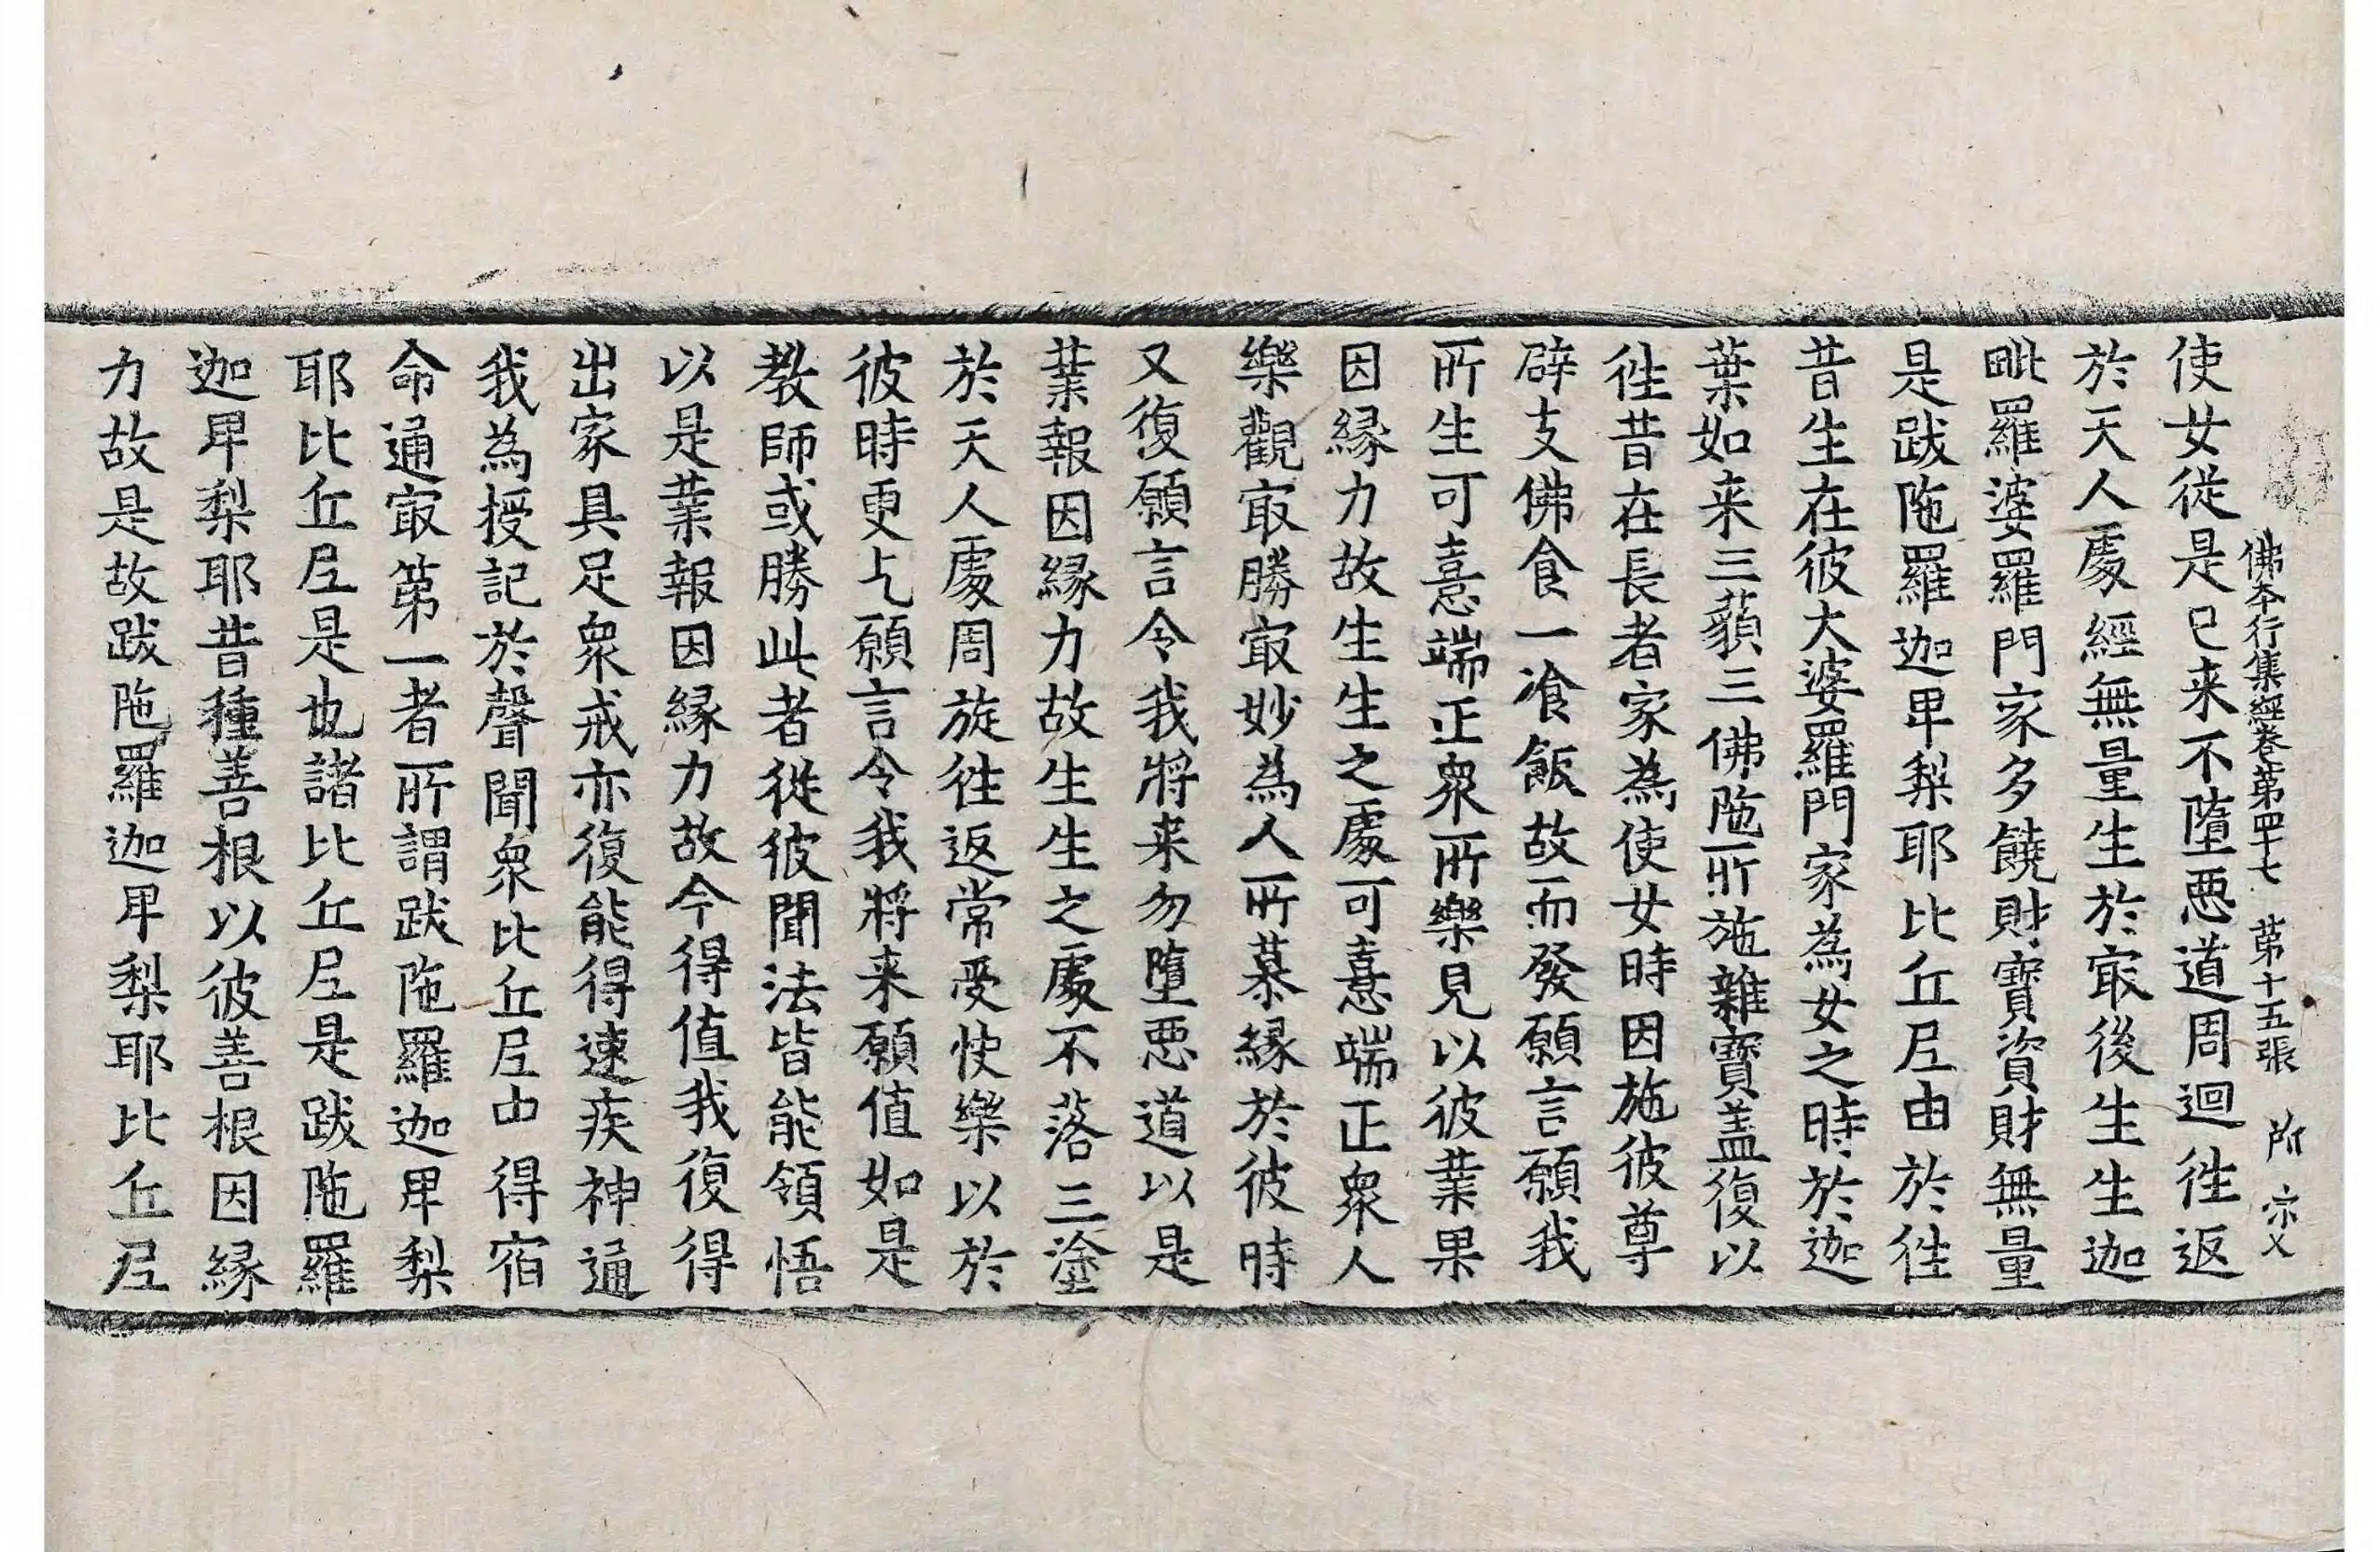 佛本行集經卷第四十七 第十五張 所 宗乂
使女從是已来不墮惡道周迴徃返
於天人處經無量生於㝡後生生迦
毗羅婆羅門家多饒財寶資財無量
是跋陁羅迦卑梨耶比丘尼由於徃
昔生在彼大婆羅門家為女之時於迦
葉如来三藐三佛陁所施雜寶蓋復以
徃昔在長者家為使女時因施彼尊
辟支佛食一飡飯故而發願言願我
所生可憙端正衆所樂見以彼業果
因縁力故生生之處可憙端正衆人
樂觀㝡勝㝡妙為人所慕縁於彼時
又復願言令我將来勿墮惡道以是
業報因縁力故生生之處不落三塗
於天人處周旋徃返常受快樂以於
彼時更乞願言令我將来願值如是
教師或勝此者從彼聞法皆能領悟
以是業報因縁力故今得值我復得
出家具足衆戒亦復能得速疾神通
我為授記於聲聞衆比丘尼中得宿
命通㝡第一者所謂跋陁羅迦卑梨
耶比丘尼是也諸比丘尼是跋陁羅
迦卑梨耶昔種善根以彼善根因縁
力故是故跋陁羅迦卑梨耶比丘尼